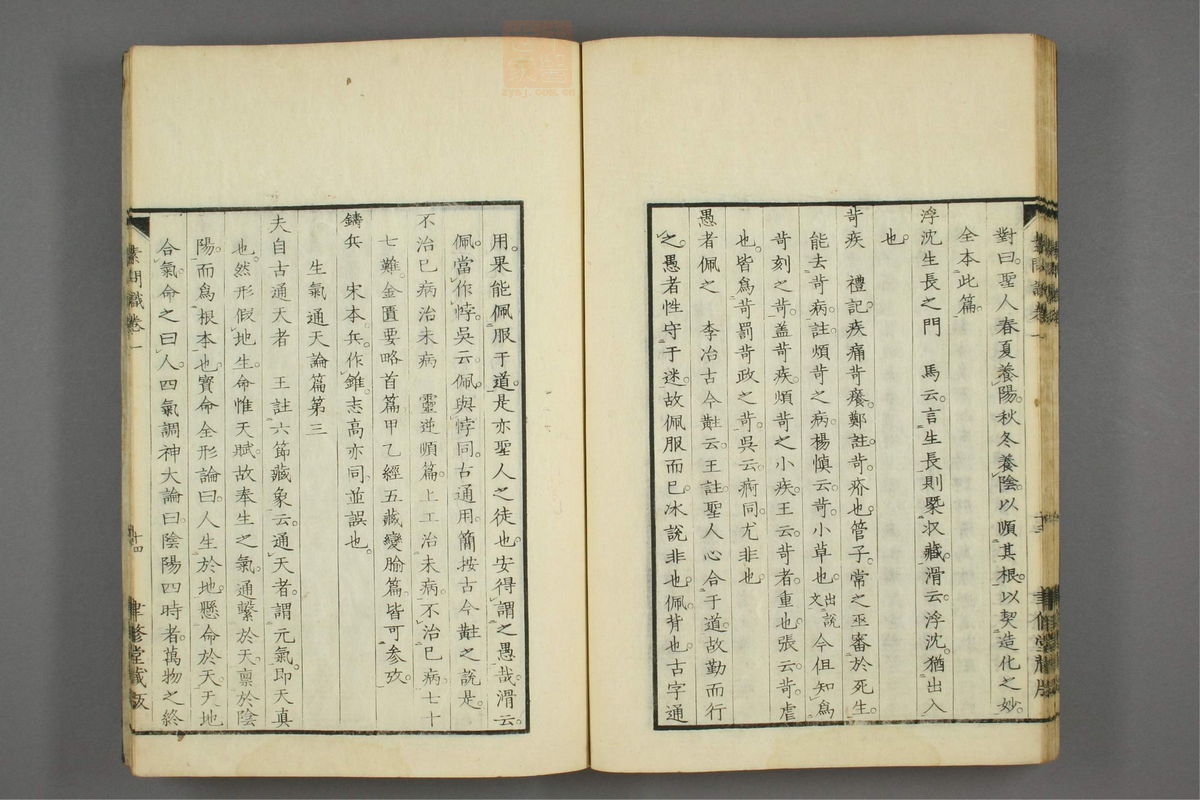 對曰。聖人春夏養陽。秋冬養陰。以順其根。以契造化之妙。
全本此篇。
浮沈生長之門　馬云。言生長則槩収藏。滑云。浮沈。猶出入
也。
苛疾　禮記。疾痛苛癢。鄭註。苛。疥也。管子。常之巫審於死生。
能去苛病。註。煩苛之病。楊慎云。苛。小草也。出說文今但知爲
苛刻之苛。蓋苛疾。煩苛之小疾。王云。苛者重也。張云。苛。虐
也。皆爲苛罰苛政之苛。吳云。疴同。尤非也。
愚者佩之　李冶古今黈云。王註。聖人心合于道。故勤而行
之。愚者性守于迷。故佩服而已。冰說非也。佩。背也。古字通
用。果能佩服于道。是亦聖人之徒也。安得謂之愚哉。滑云。
佩。當作悖。吳云。佩。與悖同。古通用。簡按古今黈之說是。
不治已病治未病　靈逆順篇。上工治未病。不治已病。七十
七難。金匱要略首篇。甲乙經五藏變腧篇。皆可參攷。
鑄兵　宋本。兵。作錐。志高亦同。並誤也。
生氣通天論篇第三
夫自古通天者　王註。六節藏象云。通天者。謂元氣。即天真
也。然形假地生。命惟天賦。故奉生之氣。通繫於天。稟於陰
陽。而爲根本也。寶命全形論曰。人生於地。懸命於天。天地
合氣。命之曰人。四氣調神大論曰。陰陽四時者。萬物之終
素問識卷一
十四
聿修堂藏版